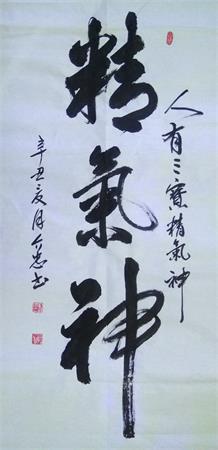 人有三寶精氣神
精氣神
辛丑夏月
書